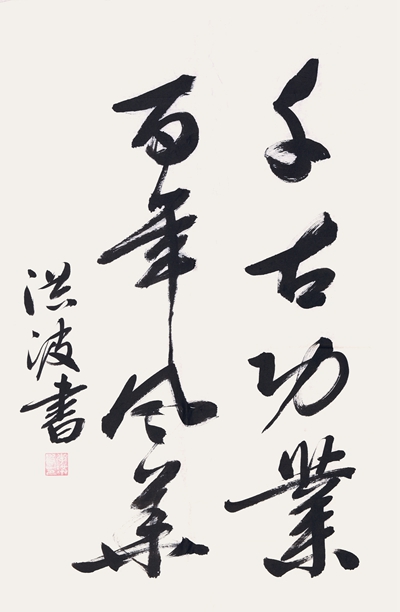 千古功業
百年风华
洪波書